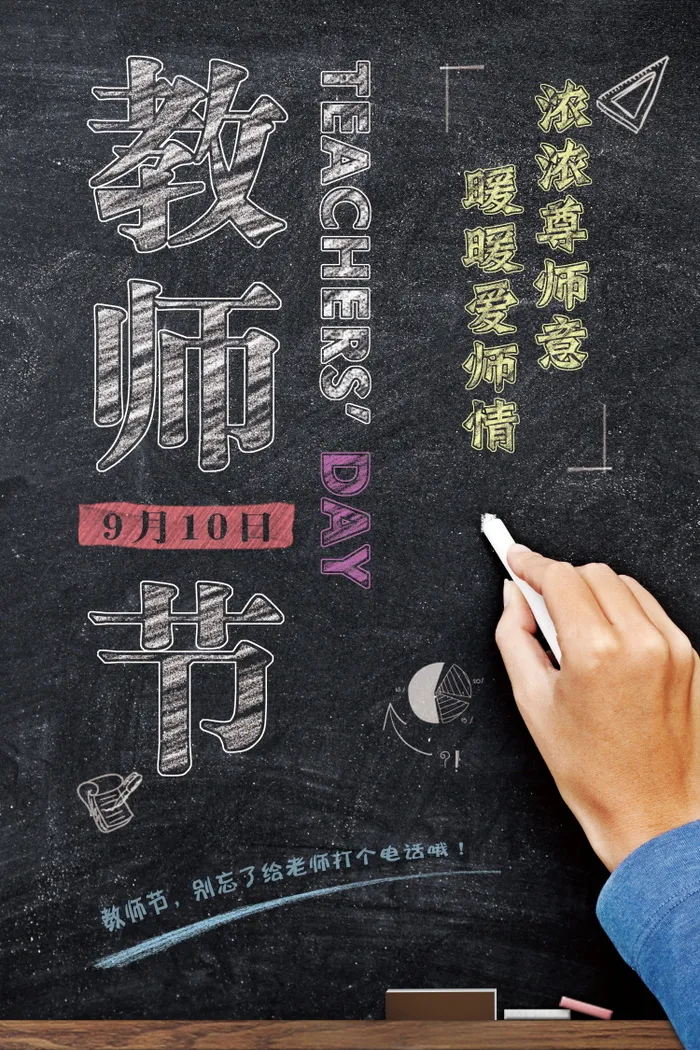 教师节
9月10日
TEACHERS' DAY
浓浓尊师意
暖暖爱师情
?!
教师节，别忘了给老师打个电话哦！